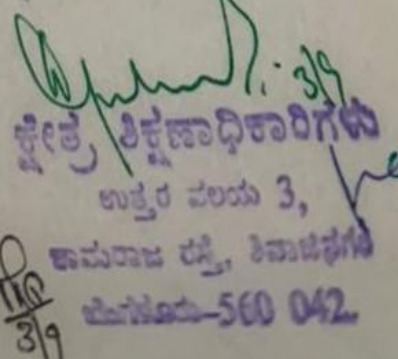 3/9
ಕ್ಷೇತ್ರ ಶಿಕ್ಷಣಾಧಿಕಾರಿಗಳು
ಉತ್ತರ ವಲಯ 3,
ಕಾಮರಾಜ ರಸ್ತೆ, ಶಿವಾಜಿನಗರ
ಬೆಂಗಳೂರು-560 042.
3/9